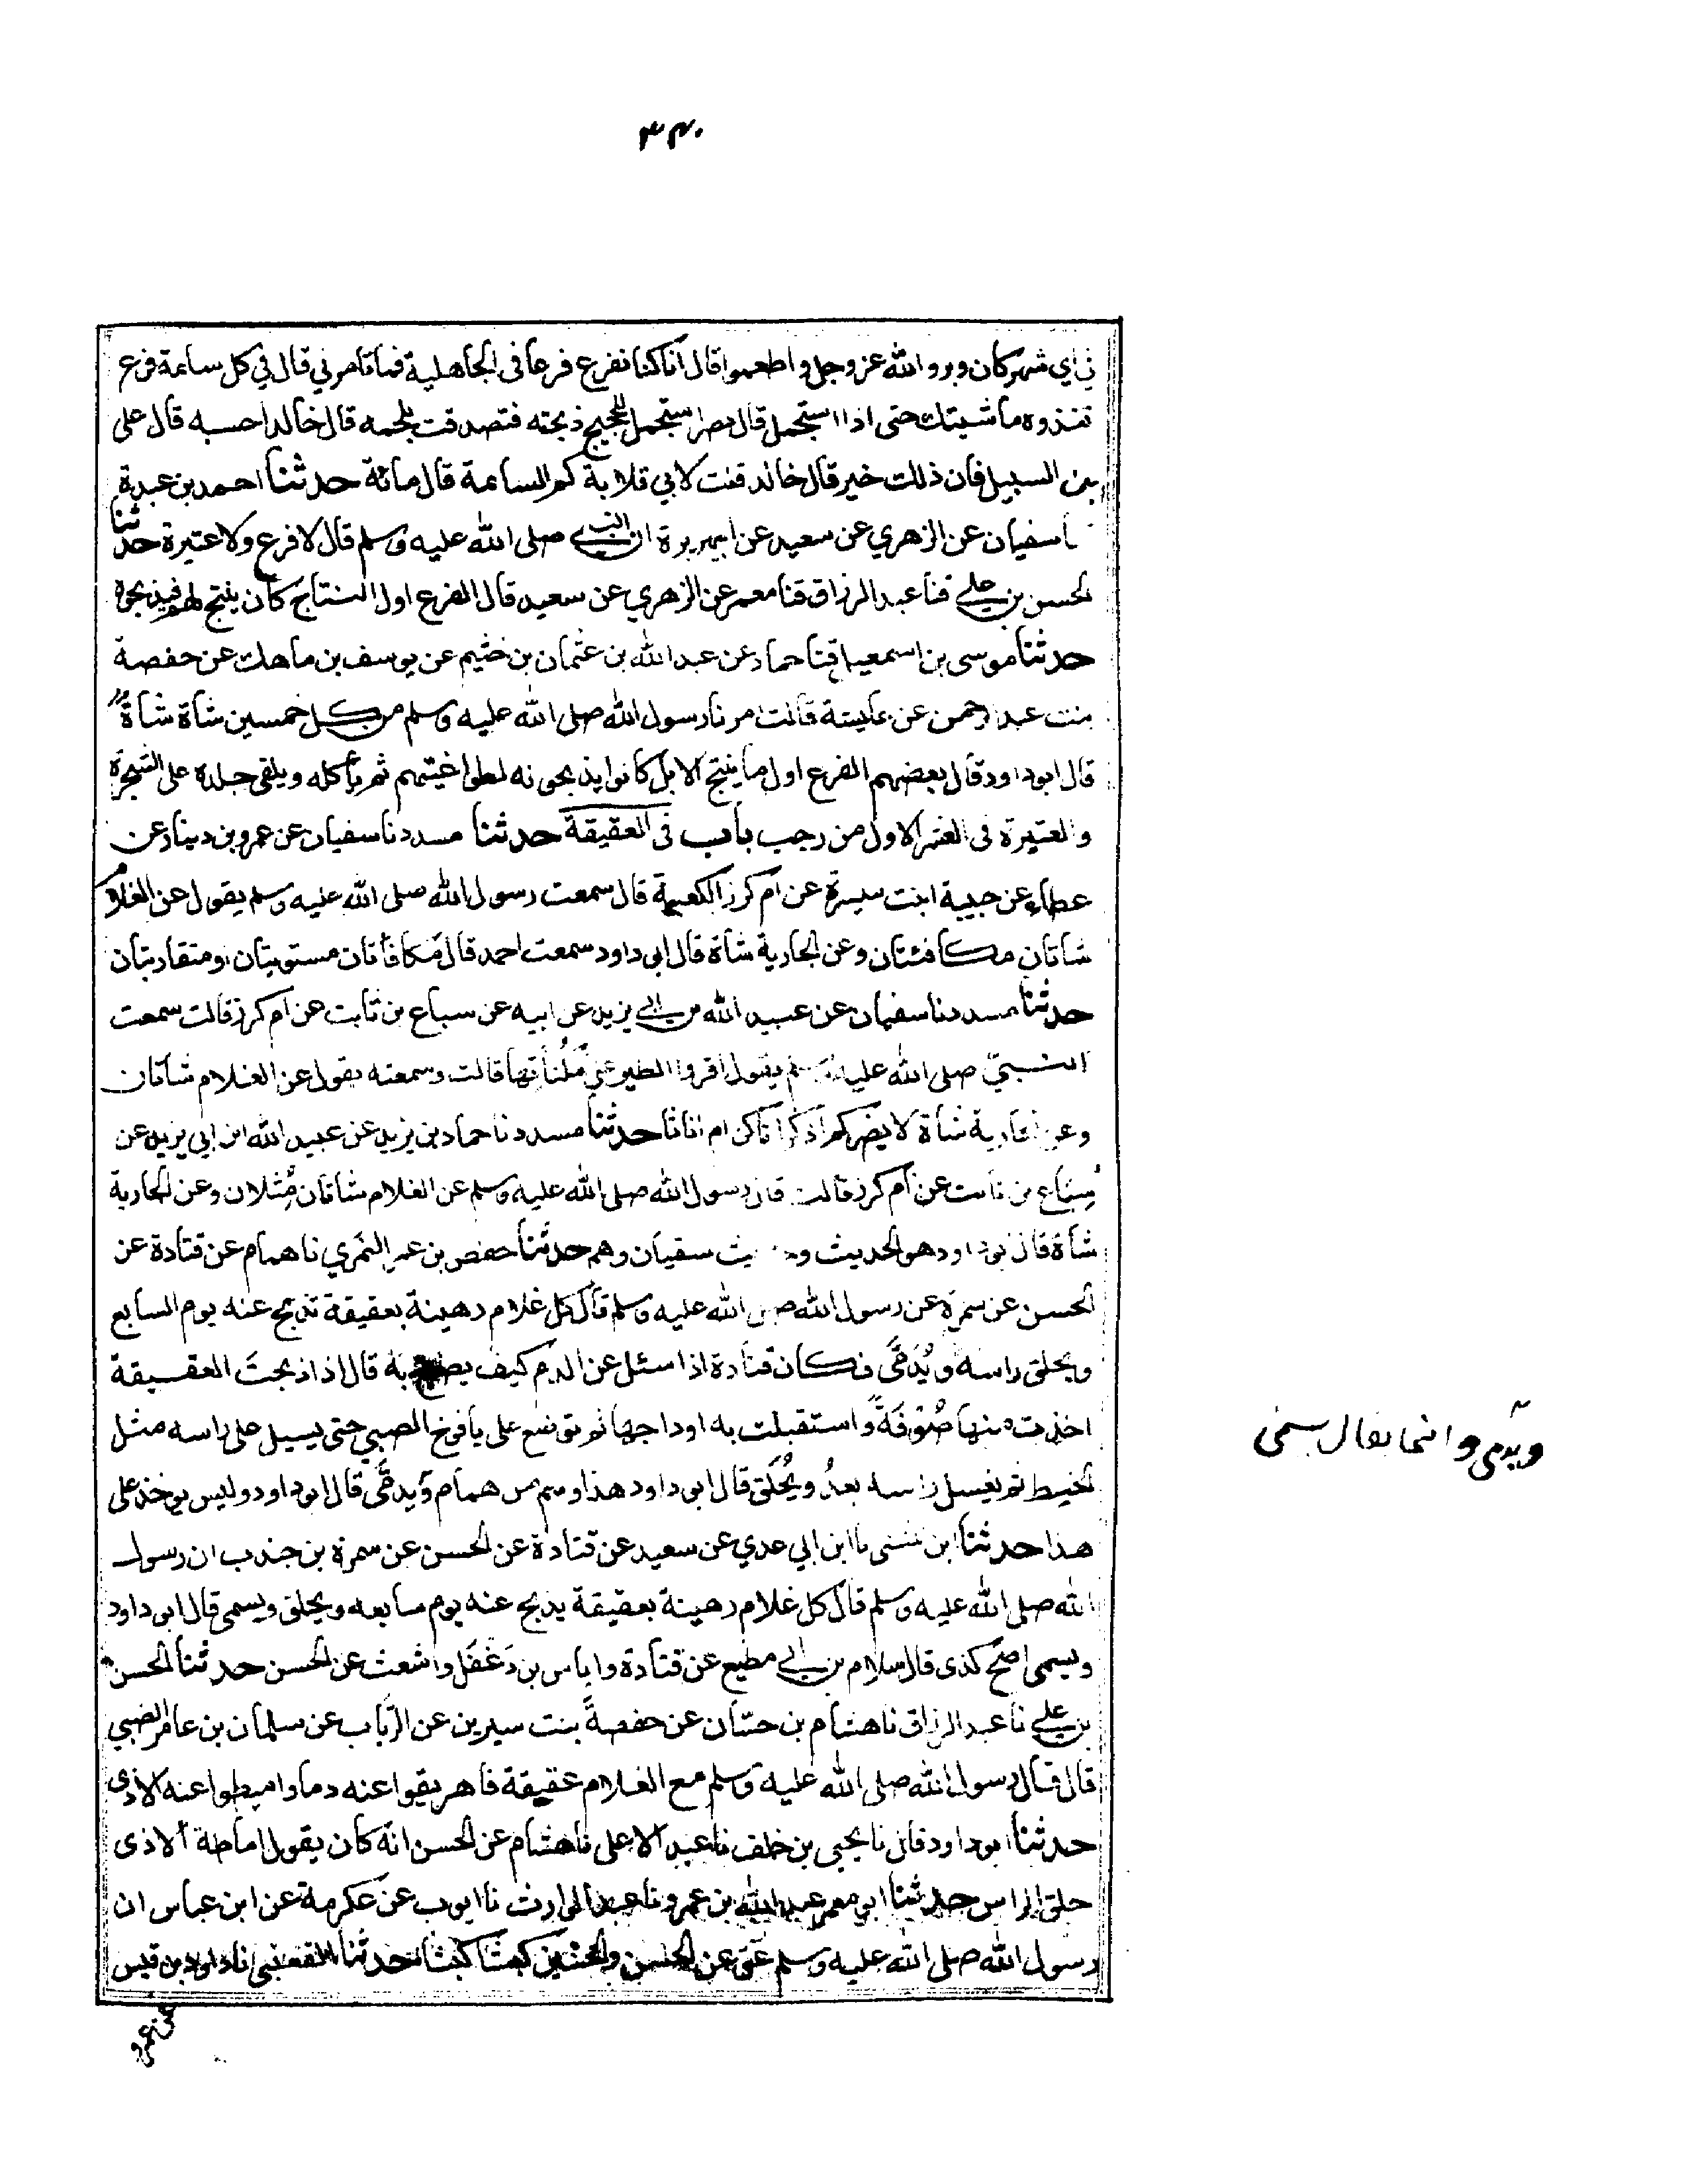 ٣٤٠
في اي شهر كان وبروا الله عز وجل واطعموا قال انا كنا نفرع فرعا فى الجاهلية فما تامرني قال في كل سائمة فرع
تغذوه ماشيتك حتى اذا استحمل قال نصر استحمل للحجيج ذبحته فتصدقت بلحمه قال خالد احسبه قال على
بن السبيل فان ذلك خير قال خالد قلت لابي قلابة كم السائمة قال مائة حدثنا احمد بن عبدة
نا سفيان عن الزهري عن سعيد عن ابيهريرة ان النبي صلى الله عليه وسلم قال لا فرع ولا عتيرة حدثنا
الحسن بن علي قثنا عبد الرزاق قثنا معمر عن الزهري عن سعيد قال الفرع اول النتاج كان ينتج لهم فيذبحوه
حدثنا موسى بن اسمعيل قثنا حماد عن عبد الله بن عثمان بن خثيم عن يوسف بن ماهك عن حفصة
بنت عبد الرحمن عن عايشة قالت امرنا رسول الله صلى الله عليه وسلم من كل خمسين شاة شاة
قال ابو داود قال بعضهم الفرع اول ما ينتج الابل كانوا يذبحونه لطواغيتهم ثم يأكله ويلقى جلده على الشجرة
والعتيرة فى العشر الاول من رجب باب فى العقيقة حدثنا مسدد نا سفيان عن عمرو بن دينار عن
عطاء عن حبيبة ابنت ميسرة عن ام كرز الكعبية قال سمعت رسول الله صلى الله عليه وسلم يقول عن الغلام
شاتان مكافئتان وعن الجارية شاة قال ابى داود سمعت احمد قال مكافأتان مستويتان او متقاربتان
حدثنا مسدد نا سفيان عن عبيد الله بن ابي يزيد عن ابيه عن سباع بن ثابت عن ام كرز قالت سمعت
النبي صلى الله عليه وسلم يقول اقروا الطير على مكناتها قالت وسمعته يقول عن الغلام شاتان
وعن الجارية شاة لا يضركم اذكرانا كن ام اناثا حدثنا مسدد نا حماد بن يزيد عن عبيد الله ابن ابي يزيد عن
سباع بن ثابت عن ام كرز قالت قال رسول الله صلى الله عليه وسلم عن الغلام شاتان مثلان وعن الجارية
شاة قال ابو داود هو الحديث وحديث سفيان وهم حدثنا حفص بن عمر النمري نا همام عن قتادة عن
الحسن عن سمرة عن رسول الله صلى الله عليه وسلم قال كل غلام رهينة بعقيقة تذبح عنه يوم السابع
ويحلق راسه ويدمى فكان قتادة اذا سئل عن الدم كيف يصنع به قال اذا ذبحت العقيقة
اخذت منها صوفة واستقبلت به اوداجها ثم توضع على يافوخ الصبي حتى يسيل على راسه مثل
الخيط ثم يغسل راسه بعد ويحلق قال ابى داود هذا وهم من همام ويدمى قال ابو داود وليس يوخذ على
هذا حدثنا ابن مثنى نا ابن ابي عدي عن سعيد عن قتادة عن الحسن عن سمرة بن جندب ان رسول
الله صلى الله عليه وسلم قال كل غلام رهينة بعقيقة يذبح عنه يوم سابعه ويحلق ويسمى قال ابى داود
ويسمى اصح كذى قال سلام بن ابي مطيع عن قتادة واياس بن دغفل واشعث عن الحسن حدثنا الحسن
بن علي نا عبد الرزاق نا هشام بن حسان عن حفصة بنت سيرين عن الرباب عن سلمان بن عامر الضبي
قال قال رسول الله صلى الله عليه وسلم مع الغلام عقيقة فاهريقوا عنه دما واميطوا عنه الاذى
حدثنا ابو داود قال نا يحيى بن خلف نا عبد الاعلى نا هشام عن الحسن انه كان يقول اماطة الاذى
حلق الراس حدثنا ابى معمر عبد الله بن عمرو نا عبد الوارث نا ايوب عن عكرمة عن ابن عباس ان
رسول الله صلى الله عليه وسلم عق عن الحسن والحسين كبشا كبشا حدثنا القعنبي نا داود بن قيس
عن عمرو
ويدمى وانما يقال يسمى